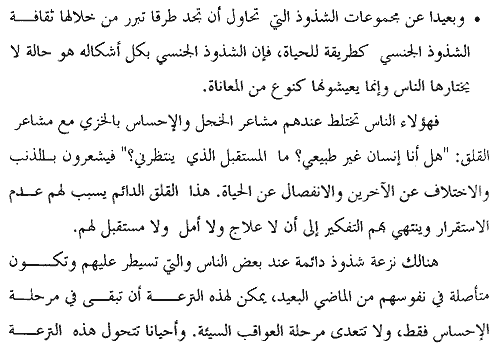 • وبعيدا عن مجموعات الشذوذ التي تحاول أن تجد طرقا تبرر من خلالها ثقافة
الشذوذ الجنسي كطريقة للحياة، فإن الشذوذ الجنسي بكل أشكاله هو حالة لا
يختارها الناس وإنما يعيشونها كنوع من المعاناة.
فهؤلاء الناس تختلط عندهم مشاعر الخجل والإحساس بالخزي مع مشاعر
القلق: "هل أنا إنسان غير طبيعي؟ ما المستقبل الذي ينتظرني؟" فيشعرون بالذنب
والاختلاف عن الآخرين والانفصال عن الحياة. هذا القلق الدائم يسبب لهم عدم
الاستقرار وينتهي بهم التفكير إلى أن لا علاج ولا أمل ولا مستقبل لهم.
هنالك نزعة شذوذ دائمة عند بعض الناس والتي تسيطر عليهم وتكون
متأصلة في نفوسهم من الماضي البعيد، يمكن لهذه النزعة أن تبقى في مرحلة
الإحساس فقط، ولا تتعدى مرحلة العواقب السيئة. وأحيانا تتحول هذه النزعة